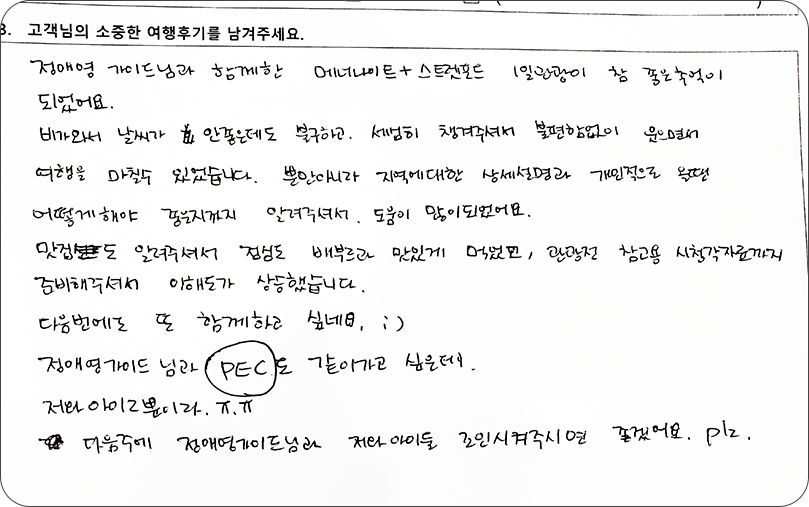 3. 고객님의 소중한 여행후기를 남겨주세요.
정애영 가이드님과 함께한 메너나이트+스트렛포드 1일관광이 참 좋은추억이
되었어요.
비가와서 날씨가 안좋은데도 불구하고. 세심히 챙겨주셔서 불편함없이 웃으면서
여행을 마칠수 있었습니다. 뿐만아니라 지역에대한 상세설명과 개인적으로 올땐
어떻게해야 좋은지까지 알려주셔서. 도움이 많이되었어요.
맛집도 알려주셔서 점심도 배부르고 맛있게 먹었고, 관광전 참고용 시청각자료까지
준비해주셔서 이해도가 상승했습니다.
다음번에도 또 함께하고 싶네요. ;)
정애영가이드 님과 PEC도 같이가고 싶은데.
저와 아이2뿐이라. ㅠ.ㅠ
다음주에 정애영가이드님과 저와아이들 조인시켜주시면 좋겠어요. plz.